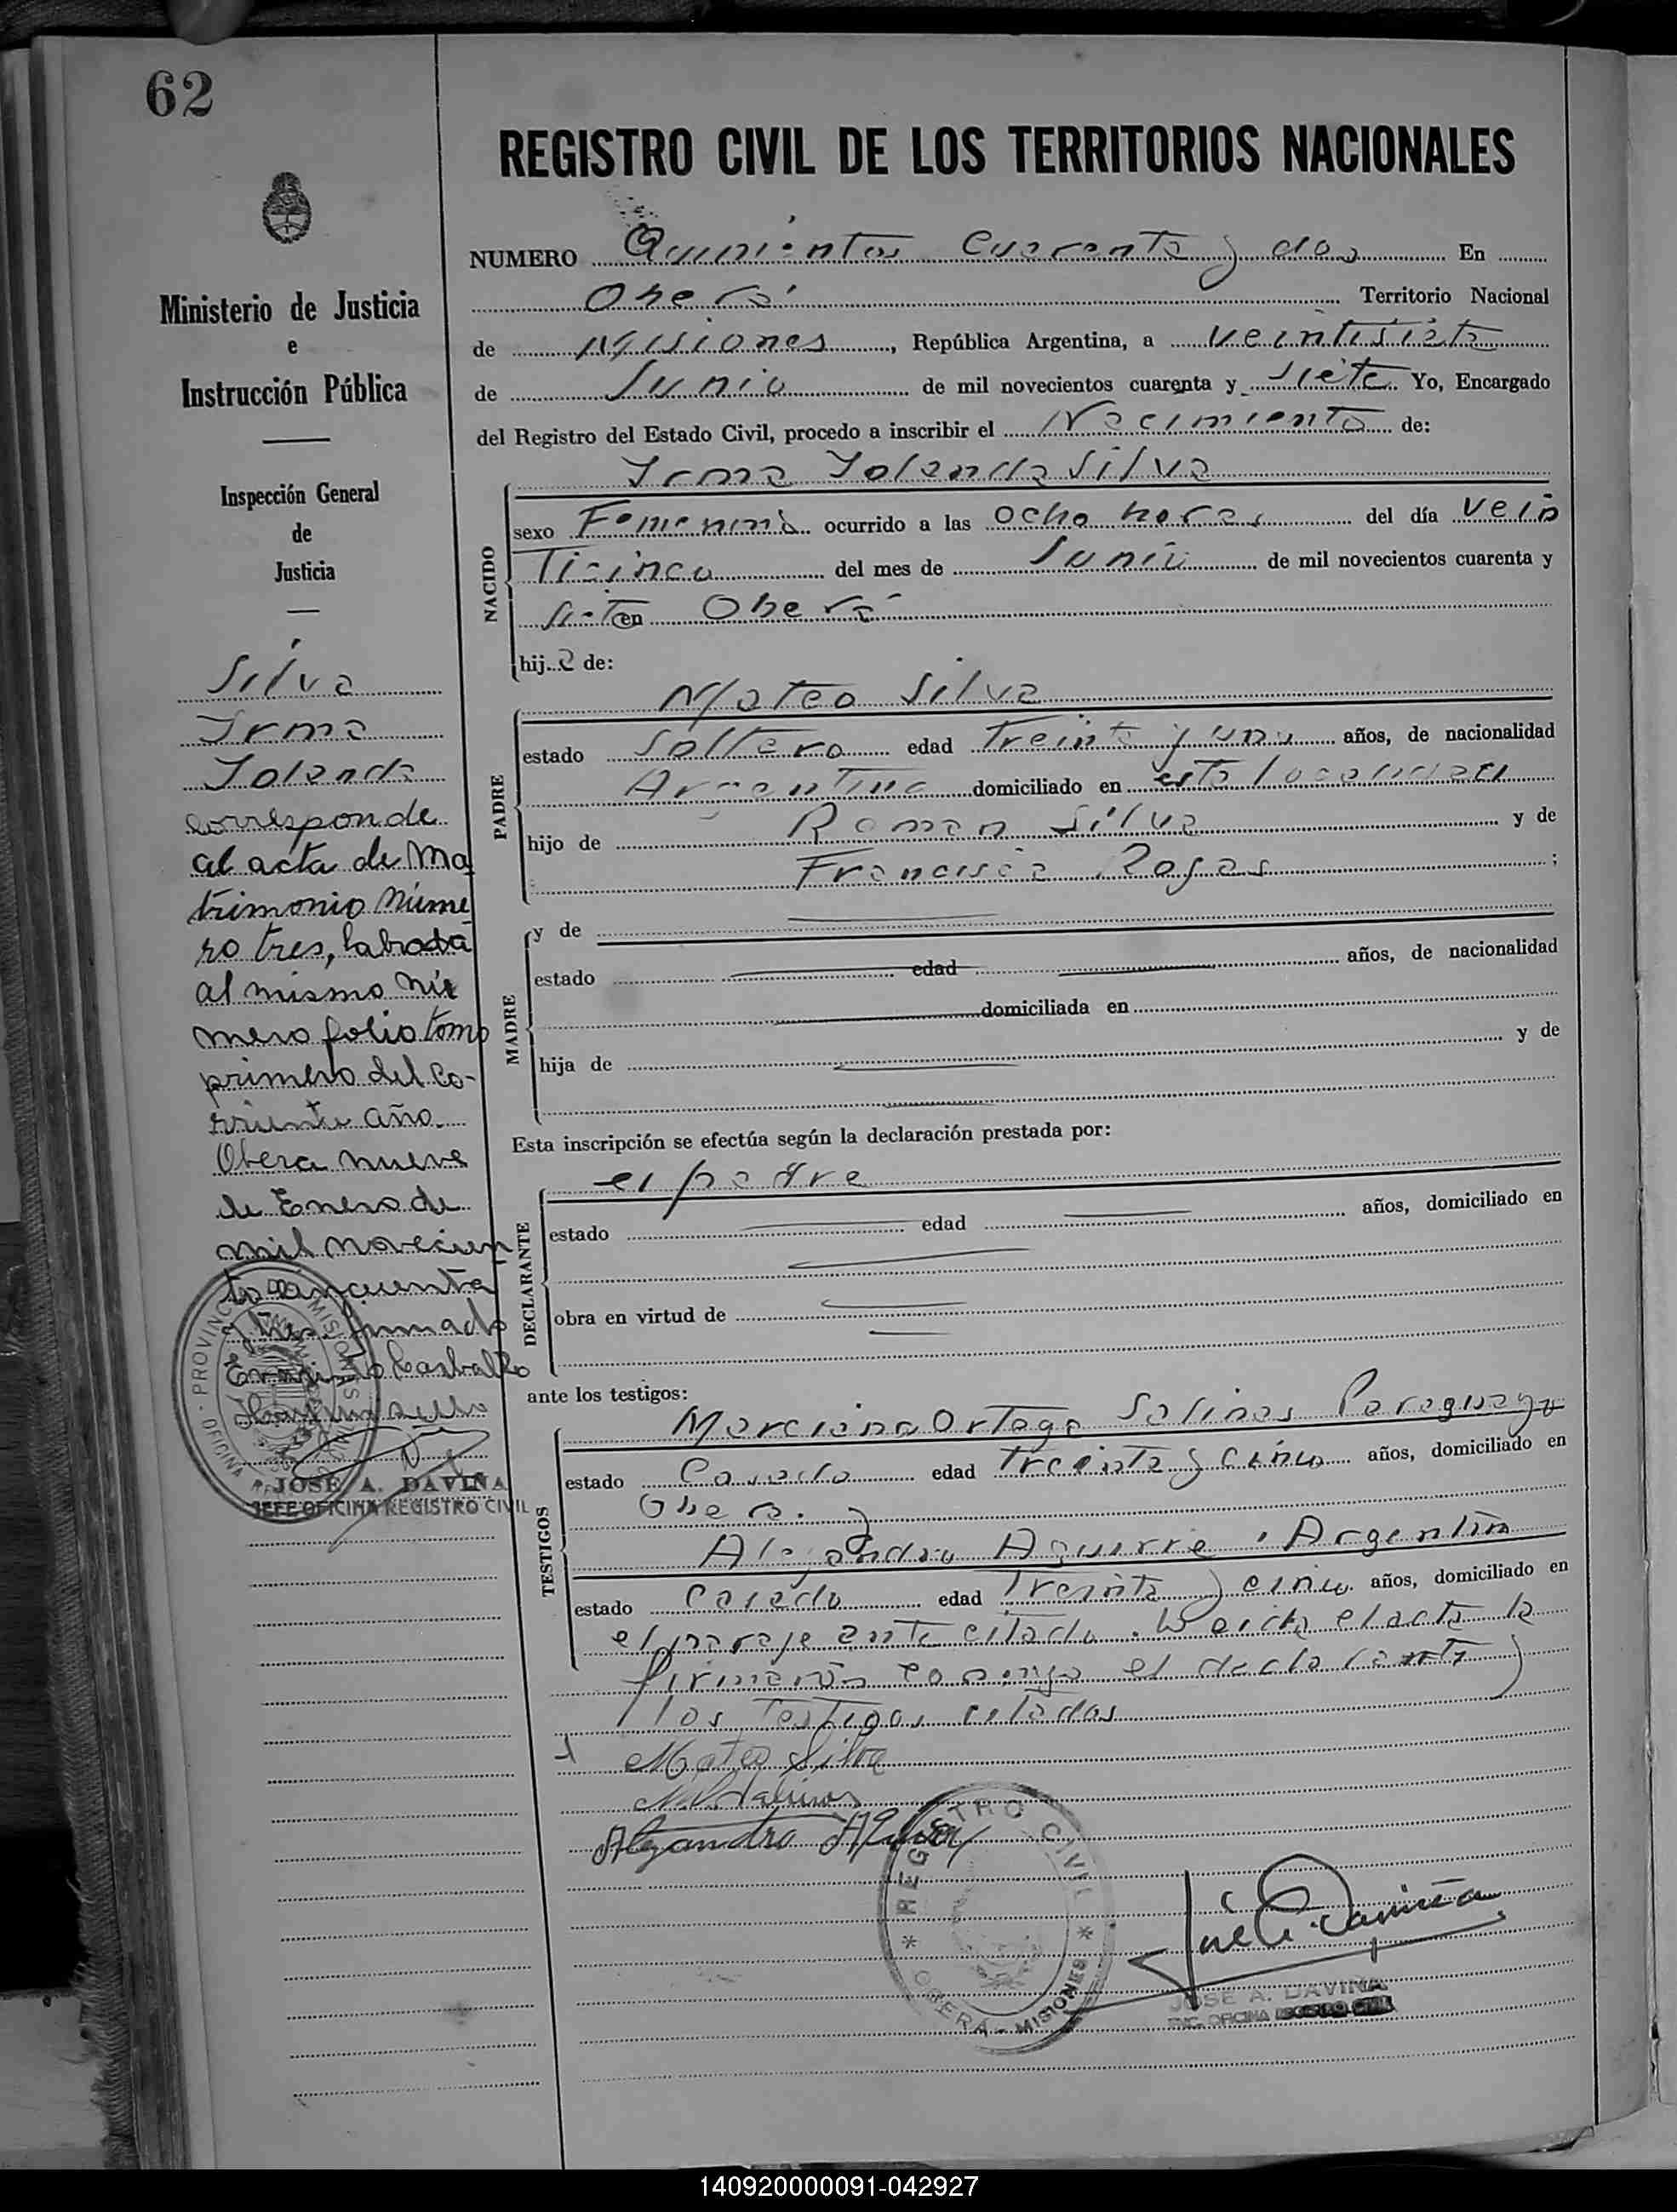 62
REGISTRO CIVIL DE LOS TERRITORIOS NACIONALES
NUMERO Quinientos Cuarenta y dos En
Oberá Territorio Nacional
de Misiones, República Argentina, a veintisiete
de Junio de mil novecientos cuarenta y siete Yo, Encargado
del Registro del Estado Civil, procedo a inscribir el Nacimiento de:
NACIDO
Irma Iolanda Silva
sexo Femenino ocurrido a las Ocho horas del día vein
ticinco del mes de Junio de mil novecientos cuarenta y
siete en Oberá
hija de:
PADRE
Mateo Silva
estado Soltero edad Treinta y uno años, de nacionalidad
Argentino domiciliado en esta localidad
hijo de Roman Silva y de
Francisca Rojas ;
MADRE
y de
estado edad años, de nacionalidad
domiciliada en
hija de y de
Esta inscripción se efectúa según la declaración prestada por:
DECLARANTE
el padre
estado edad años, domiciliado en
obra en virtud de
ante los testigos:
TESTIGOS
Marciano Ortega Salinas Paraguayo
estado Casado edad treinta y cinco años, domiciliado en
Oberá. y
Alejandro Aguirre, Argentino
estado Casado edad treinta y cinco años, domiciliado en
el paraje ante citado. Leida el acta la
firmarón conmigo el declarante y
los testigos citados
Mateo Silva
Salinas
Alejandro
REGISTRO CIVIL
OBERA - MISIONES
JOSE A. DAVIÑA
ENC. OFICINA REGISTRO CIVIL
Ministerio de Justicia
e
Instrucción Pública
Inspección General
de
Justicia
Silva
Irma
Iolanda
corresponde
al acta de Ma
trimonio Núme
ro tres, labrada
al mismo nú
mero folio tomo
primero del co-
rriente año.
Obera nueve
de Enero de
mil novecien
tos cincuenta
y tres. firmado
Carballo
PROVINCIA MISIONES
OFICINA
JOSE A. DAVIÑA
JEFE OFICINA REGISTRO CIVIL
140920000091-042927